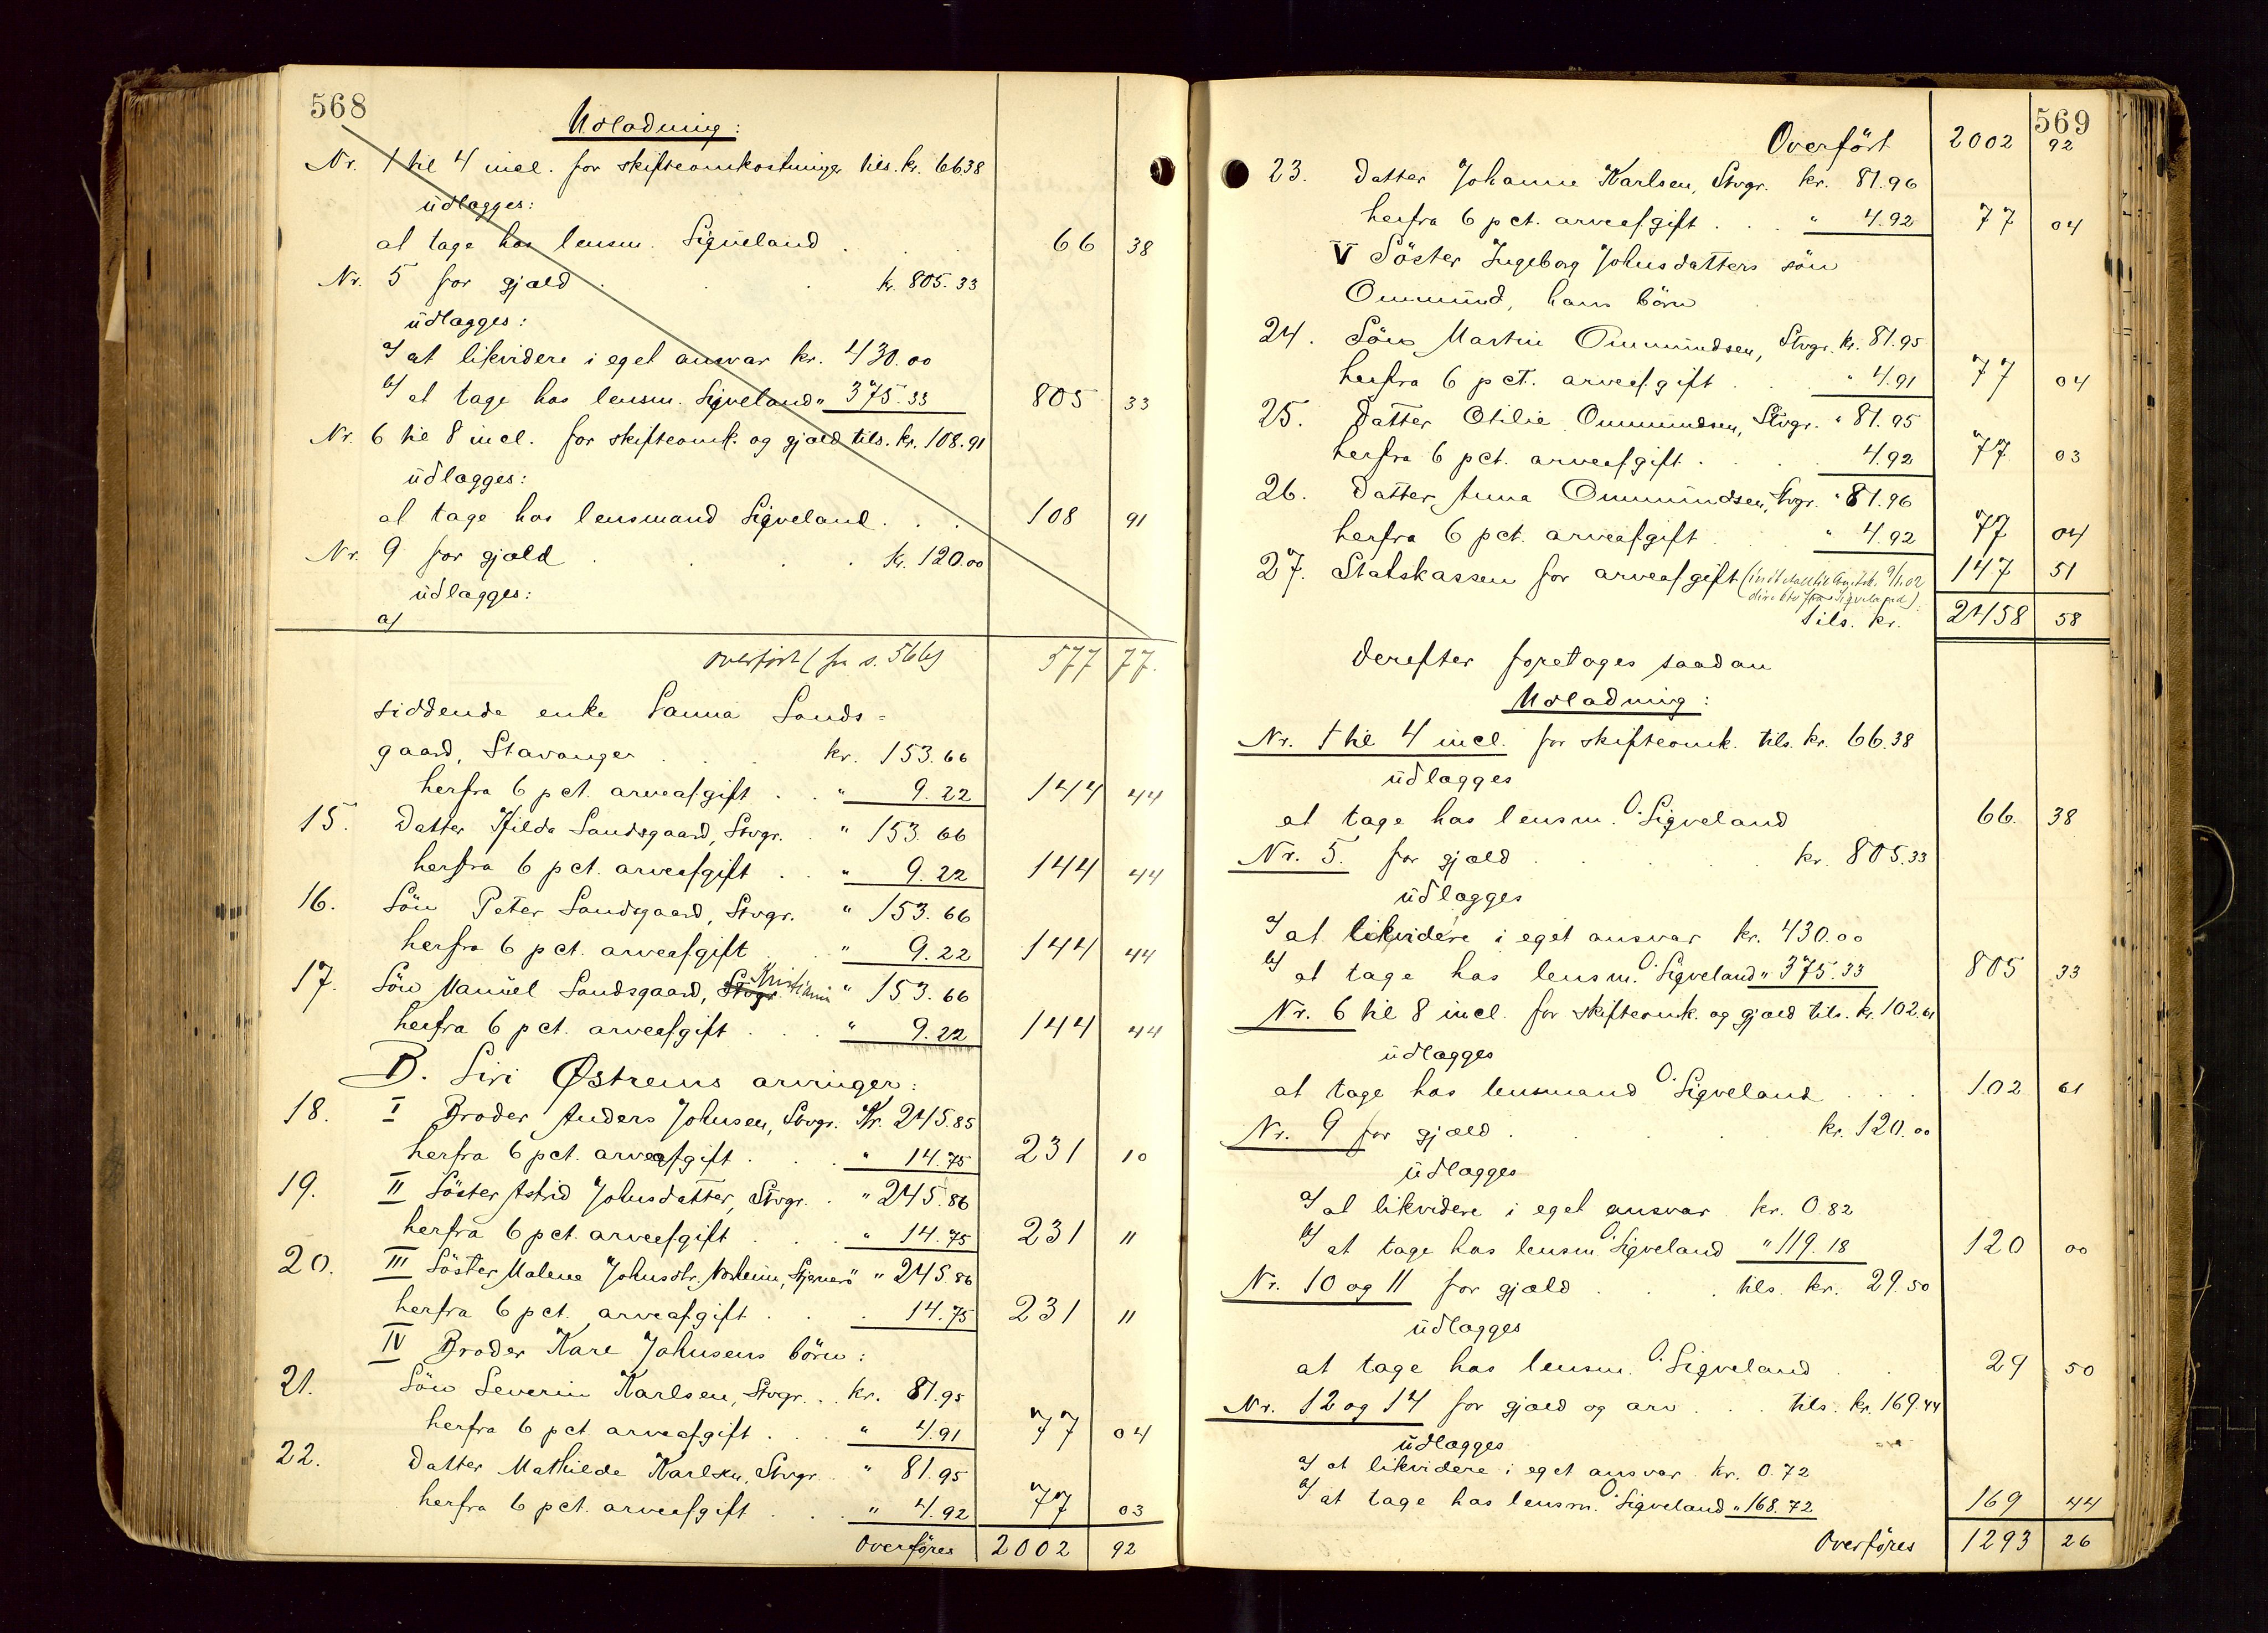 568
Udlodning:
Nr. 1 til 4 incl. for skifteomkostninger tils. kr. 6638
udlægges:
at tage hos lensm. Sigveland . . 66 38
Nr. 5 for gjæld . . . kr. 805.33
udlægges:
a/ at likvidere i eget ansvar kr. 430.00
b/ at tage hos lensm. Sigveland " 375.33 805 33
Nr. 6 til 8 incl. for skifteomk. og gjæld tils. kr. 108.91
udlægges:
at tage hos lensmand Sigveland . . . 108 91
Nr. 9 for gjæld . . . . kr. 120.00
udlægges:
a/
overført (fra s. 566) 577 77.
siddende enke Sanna Sands-
gaard, Stavanger . . . kr. 153.66
herfra 6 pct. arveafgift . . " 9.22 144 44
15. Datter Hilda Sandsgaard, Stvgr. . " 153.66
herfra 6 pct. arveafgift . . " 9.22 144 44
16. Sön Peter Sandsgaard, Stvgr. " 153.66
herfra 6 pct. arveafgift " 9.22 144 44
17. Sön Manuel Sandsgaard, Stvgr. Kristiania " 153.66
herfra 6 pct. arveafgift . . . " 9.22 144 44
B. Siri Østrems arvinger:
18. I Broder Anders Johnsen, Stvgr. Kr. 245.85
herfra 6 pct. arveafgift . . . " 14.75 231 10
19. II Söster Astrid Johnsdatter, Stvgr. . " 245.86
herfra 6 pct. arveafgift . . . " 14.75 231 11
20. III Söster Malene Johnsdtr. Norheim, Stjernerö " 245.86
herfra 6 pct. arveafgift . . . 14.75 231 11
IV Broder Kare Johnsens börn:
21. Sön Severin Karlsen, Stvgr. . . kr. 81.95
herfra 6 pct. arveafgift . . . " 4.91 77 04
22. Datter Mathilde Karlsen, Stvgr. " 81.95
herfra 6 pct. arveafgift . . . " 4.92 77 03
Overføres 2002 92
569
Overført 2002 92
23. Datter Johanne Karlsen, Stvgr. kr. 81.96
herfra 6 pct. arveafgift . . . " 4.92 77 04
V Söster Ingeborg Johnsdatters sön
Ommund, hans börn
24. Sön Martin Ommundsen, Stvgr. kr. 81.95
herfra 6 pct. arveafgift . . . " 4.91 77 04
25. Datter Otilie Ommundsen, Stvgr. " 81.95
herfra 6 pct. arveafgift . . . 4.92 77 03
26. Datter Anna Ommundsen, Stvgr. " 81.96
herfra 6 pct. arveafgift " 4.92 77 04
27. Statskassen for arveafgift ( 9/1.02 147 51
direkte fra Sigveland)
tils. kr. 2458 58
Derefter foretages saadan
Udlodning:
Nr. 1 til 4 incl. for skifteomk. tils. kr. 66.38
udlægges
at tage hos lensm. O. Sigveland 66. 38
Nr. 5. for gjæld . . . . kr. 805.33
udlægges
a/ at likvidere i eget ansvar kr. 430.00
b/ at tage hos lensm. O. Sigveland " 375.33 805 33
Nr. 6 til 8 incl. for skifteomk. og gjæld tils. kr. 102.61
udlægges
at tage hos lensmand O. Sigveland . . . 102 61
Nr. 9 for gjæld . . . . kr. 120.00
udlægges
a/ at likvidere i eget ansvar kr. 0.82
b/ at tage hos lensm. O. Sigveland " 119.18 120 00
Nr. 10 og 11 for gjæld . . . tils. kr. 29.50
udlægges
at tage hos lensm. O. Sigveland . . 29 50
Nr. 12 og 14 for gjæld og arv . . . tils. kr. 169.44
udlægges
a/ at likvidere i eget ansvar kr. 0.72
b/ at tage hos lensm. O. Sigveland " 168.72 169 44
Overføres 1293 26